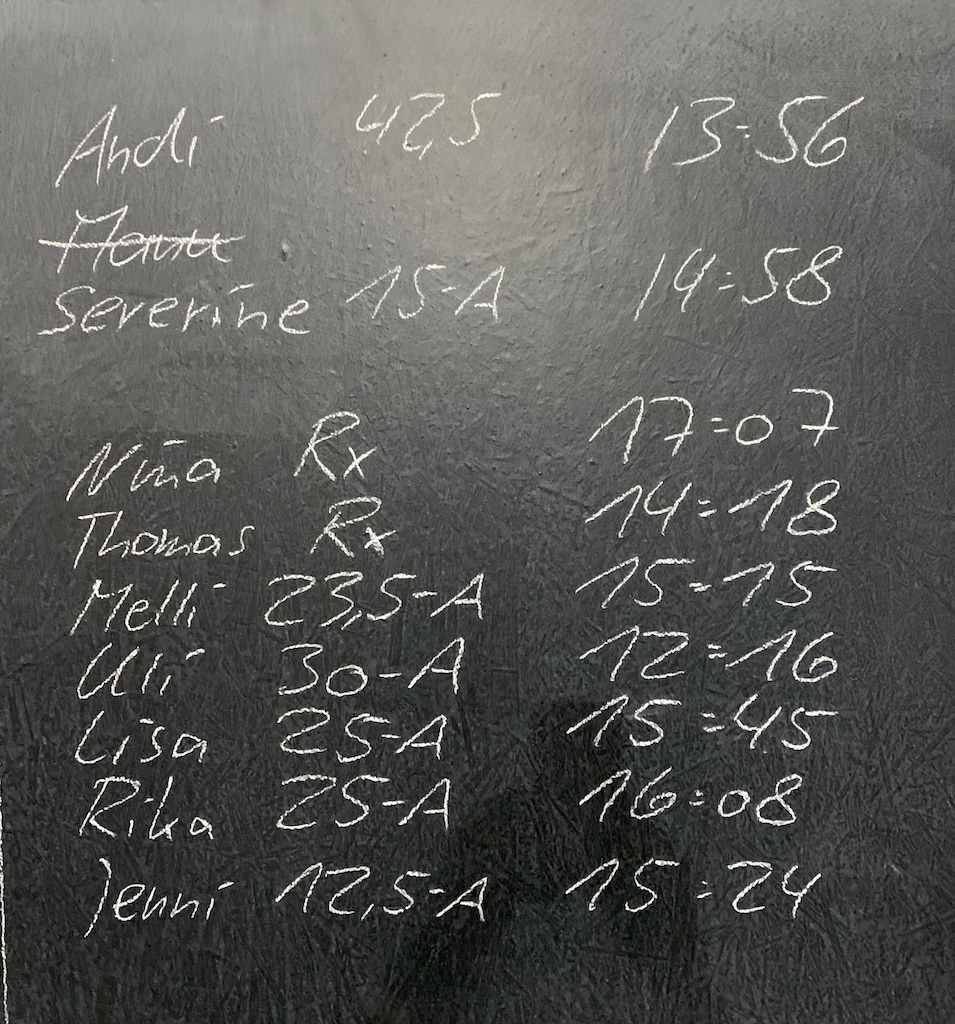 Andi 42,5 13:56
Manu
Severine 15-A 14:58
Nina Rx 17:07
Thomas Rx 14:18
Melli 23,5-A 15:15
Uli 30-A 12:16
Lisa 25-A 15:45
Rika 25-A 16:08
Jenni 12,5-A 15:24